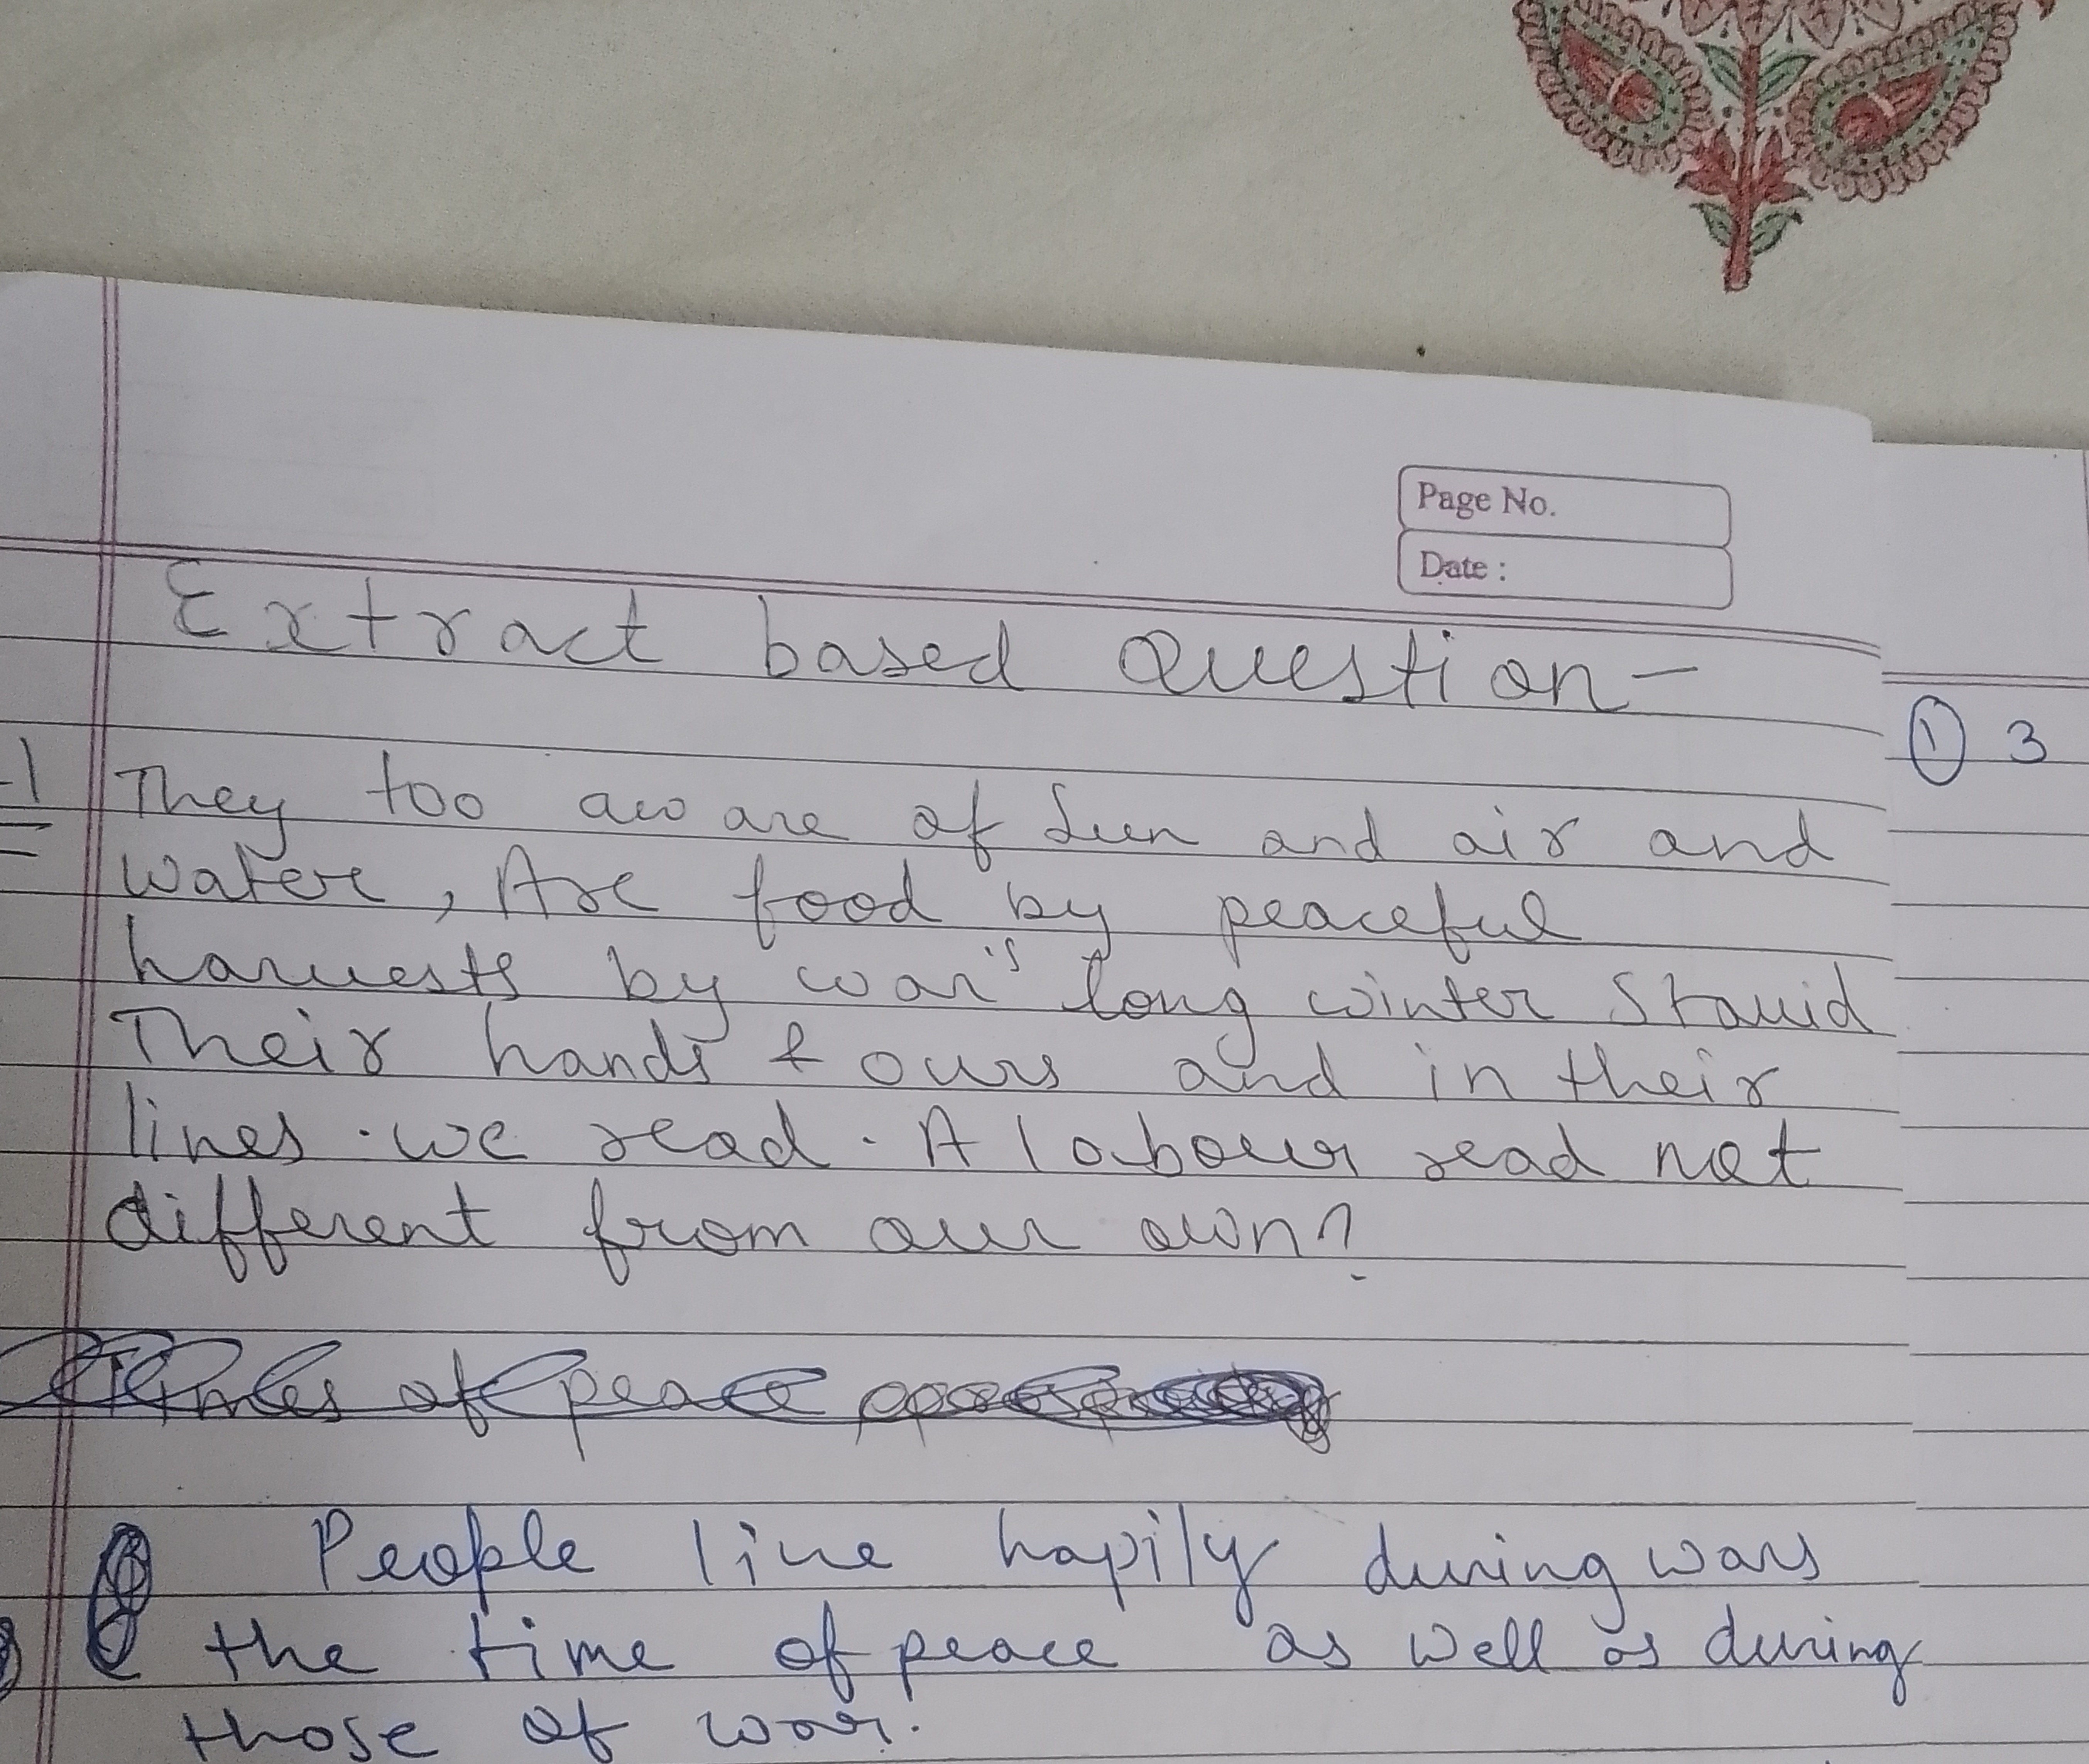 Page No.
Date :
Extract based Question-
-1 They too aware of Sun and air and
Water, Are food by peaceful
harvests by war's long winter Stavid
Their hands & ours and in their
lines. we read. A labour read not
different from our own?
Times of peace
People live hapily during wars
the time of peace as well as during
those of war.
① 3